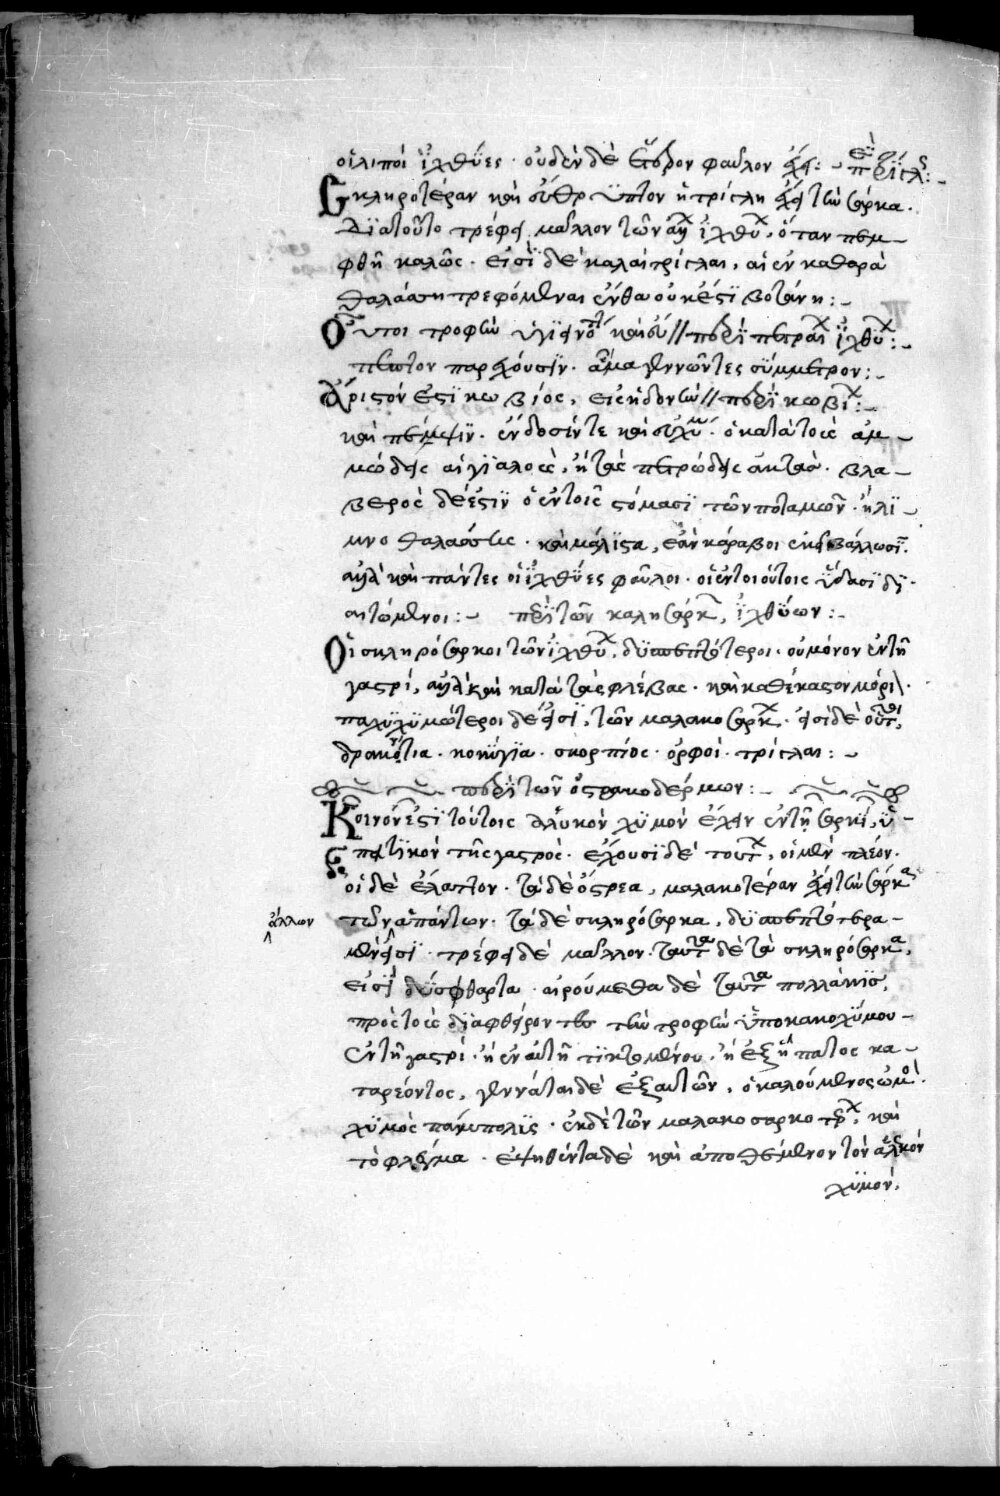 οἱ λιποὶ ἰχθύες · οὐδὲν δὲ ἕτερον φαῦλον ἔχει :
Σκληροτέραν καὶ εὔθρυπτον ἡ τρίγλη ἔχει τὴν σάρκα ·
Διατοῦτο τρέφει μᾶλλον τῶν ἀλλ ἰχθυ, ὅταν πεμ-
φθῆ καλῶς · εἰσὶ δὲ καλαὶ τρίγλαι, αἱ ἐν καθαρᾶ
θαλάσση τρεφόμεναι ἔνθα οὐκ ἔστι βοτάνη :
Οὗτοι τροφὴν // περὶ πετραι ἰχθυ :
πέπτον παρέχουσιν · αἷμα γεννῶντες σύμμετρον :
Ἄριστόν ἐστι κωβίος, εἰς ἡδονὴν // περὶ κωβι :
καὶ πέμψιν · ὁ κατὰ τοὺς ἀμ-
μώδεις αἰγιαλοὺς, ἢ τὰς πετρώδεις ἀκτὰς · βλα-
βερὸς δέ ἐστιν ὁ ἐν τοῖς στόμασι τῶν ποταμῶν · ἢ λι-
μνοθαλάσσης · καὶ μάλιστα, ἐὰν κάραβοι ἐμβάλλωσιν
ἀλλὰ καὶ πάντες οἱ ἰχθύες φαῦλοι · οἱ ἐν τοιούτοις ὕδασι δι-
αιτώμενοι : περὶ τῶν σκληροσάρκ, ἰχθύων :
Οἱ σκληρόσαρκοι τῶν ἰχθυ, δυσπεπτότεροι · οὐ μόνον ἐν τῆ
γαστρί, ἀλλὰ καὶ κατὰ τὰς φλέβας · καὶ καθέκαστον μόρι ·
παχυχυμώτεροι δέ εἰσι, τῶν μαλακοσάρκ · εἰσὶ δὲ οὗτοι,
δρακόντια · κοκκύγια · σκορπίος · ὀρφοὶ · τρίγλαι :
περὶ τῶν ὀστρακοδέρμων :
Κοινόν ἐστι τούτοις ἁλυκὸν χυμὸν ἔχειν ἐν τῆ σαρκί, ὑ-
πακτικὸν τῆς γαστρὸς · ἔχουσι δὲ τουτ, οἱ μὲν πλέον ·
οἱ δὲ ἔλαττον · τὰ δὲ ὄστρεα, μαλακοτέραν ἔχει τὴν σάρκα
ἄλλων
τῶν ἁπάντων · τὰ δὲ σκληρόσαρκα, δυσπεπτότερα
μέν εἰσι · τρέφει δὲ μᾶλλον · ταῦτα δὲ τὰ σκληρόσαρκα,
εἰσὶ δύσφθαρτα · αἱρούμεθα δὲ ταῦτα πολλάκις,
πρὸς τοὺς διαφθείροντας τὴν τροφὴν ὑπὸ κακοχύμου
ἐν τῆ γαστρί · ἢ ἐν αὐτῆ τικτομένου · ἢ ἐξ ἥπατος κα-
ταρέοντος, γεννᾶται δὲ ἐξ αὐτῶν, ὁ καλούμενος ὠμὸς
χυμὸς πάμπολις · ἐκ δὲ τῶν μαλακοσαρκοτρ, καὶ
τὸ φλέγμα · ἑψηθέντα δὲ καὶ ἀποθέμενον τὸν ἁλυκὸν
χυμόν,